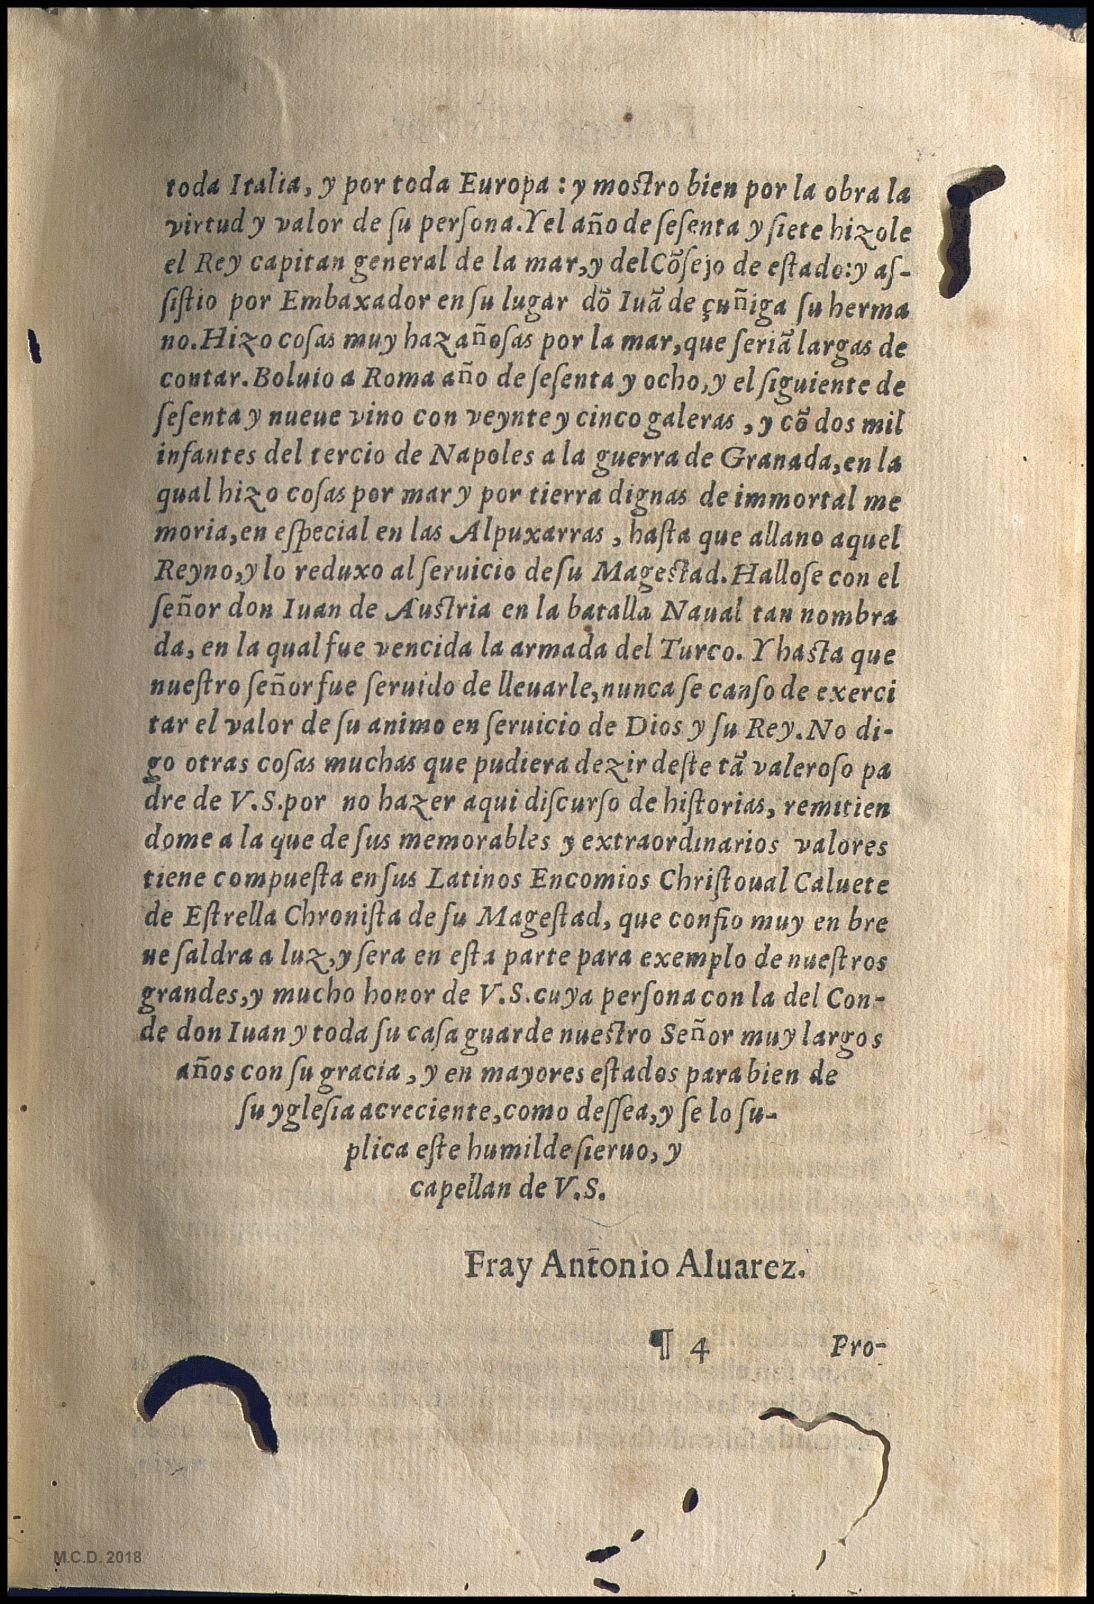 toda Italia, y por toda Europa : y mostro bien por la obra la
virtud y valor de ſu perſona. Y el año de ſeſenta y ſiete hizole
el Rey capitan general de la mar, y del Cõſejo de eſtado: y aſ-
ſiſtio por Embaxador en ſu lugar dõ Iuã de çuñiga ſu herma
no. Hizo coſas muy hazañoſas por la mar, que ſeriã largas de
contar. Boluio a Roma año de ſeſenta y ocho, y el ſiguiente de
ſeſenta y nueue vino con veynte y cinco galeras , y cõ dos mil
infantes del tercio de Napoles a la guerra de Granada, en la
qual hizo coſas por mar y por tierra dignas de immortal me
moria, en eſpecial en las Alpuxarras , haſta que allano aquel
Reyno, y lo reduxo al ſeruicio de ſu Mageſtad. Halloſe con el
ſeñor don Iuan de Auſtria en la batalla Naual tan nombra
da, en la qual fue vencida la armada del Turco. Y haſta que
nueſtro ſeñor fue ſeruido de lleuarle, nunca ſe canſo de exerci
tar el valor de ſu animo en ſeruicio de Dios y ſu Rey. No di-
go otras coſas muchas que pudiera dezir deſte tã valeroſo pa
dre de V.S. por no hazer aqui diſcurſo de hiſtorias, remitien
dome a la que de ſus memorables y extraordinarios valores
tiene compueſta en ſus Latinos Encomios Chriſtoual Caluete
de Eſtrella Chroniſta de ſu Mageſtad, que confio muy en bre
ue ſaldra a luz, y ſera en eſta parte para exemplo de nueſtros
grandes, y mucho honor de V.S. cuya perſona con la del Con-
de don Iuan y toda ſu caſa guarde nueſtro Señor muy largos
años con ſu gracia , y en mayores eſtados para bien de
ſu ygleſia acreciente, como deſſea, y ſe lo ſu-
plica eſte humilde ſieruo, y
capellan de V.S.
Fray Antonio Aluarez.
¶ 4 Pro-
M.C.D. 2018